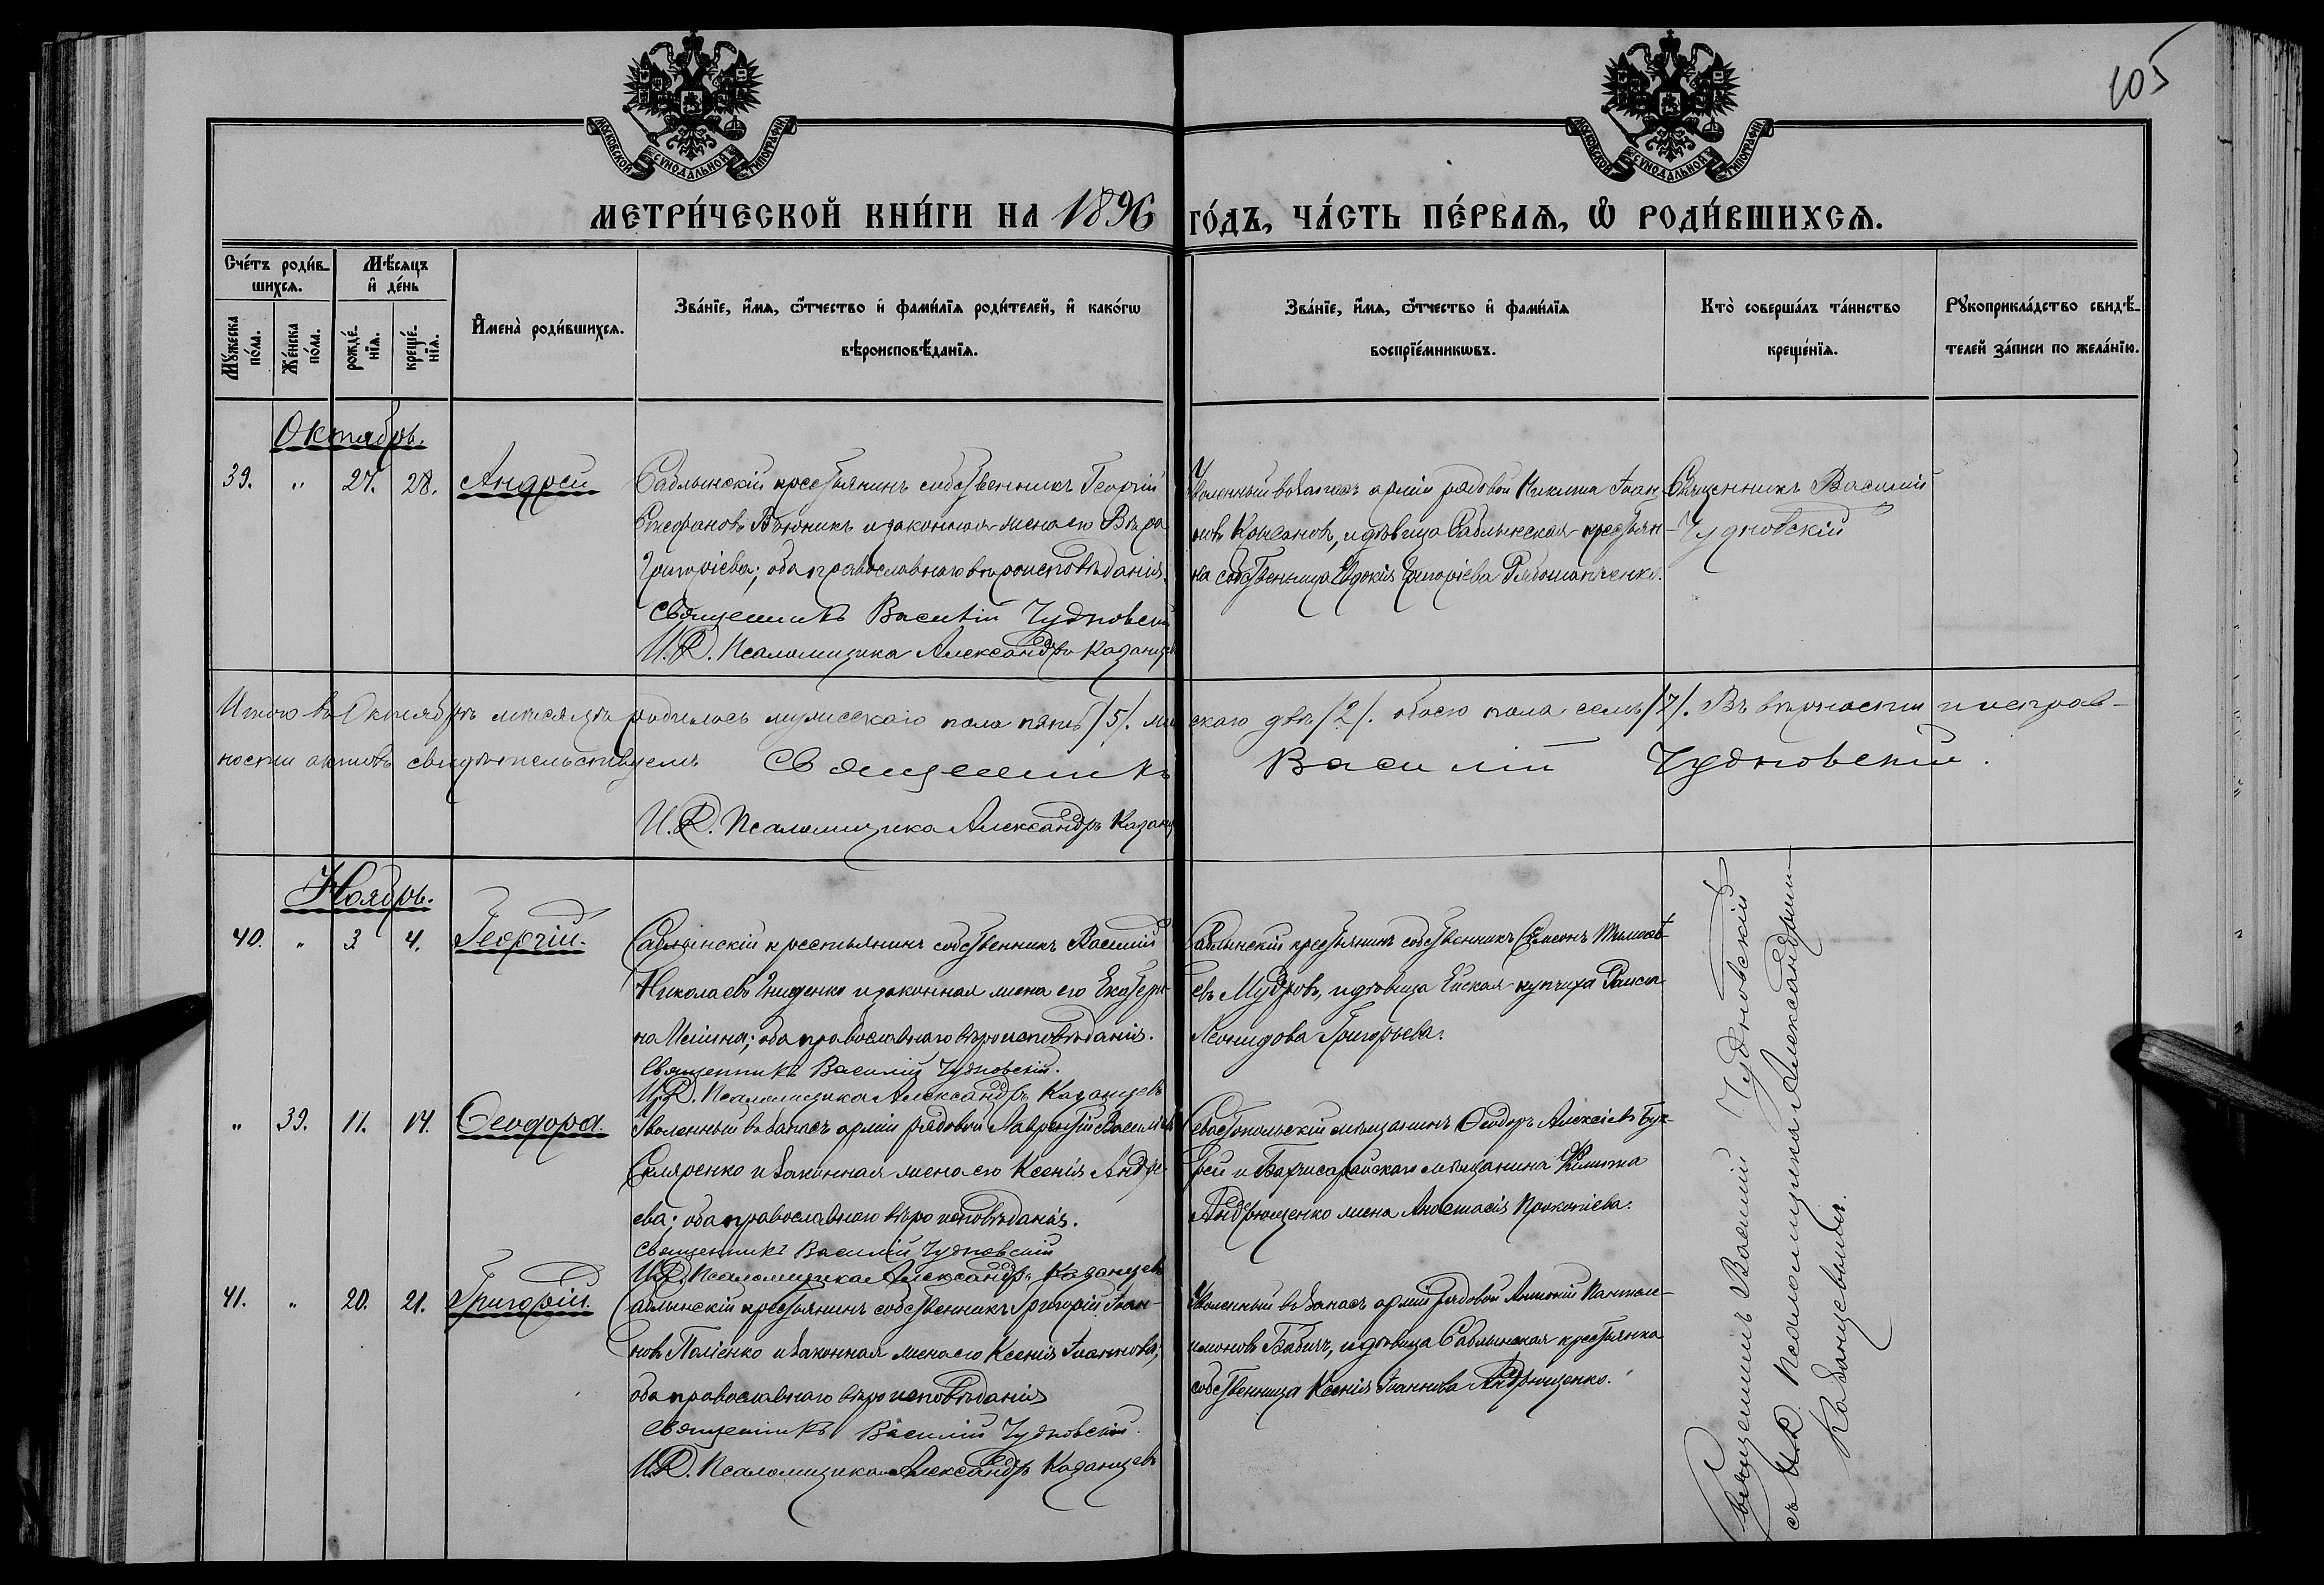 105
МОСКОВСКОЙ СѴНОДАЛЬНОЙ ТИПОГРАФІИ
МОСКОВСКОЙ СѴНОДАЛЬНОЙ ТИПОГРАФІИ
МЕТРИ́ЧЕСКОЙ КНИ́ГИ НА 1896 ГО́ДЪ, ЧА́СТЬ ПЕ́РВАѦ, Ѡ РОДИ́ВШИХСѦ.
Сче́тъ роди́в-
шихсѧ.
Мѣ́сѧцъ
и де́нь
Мꙋ́жеска
по́ла.
Же́нска
по́ла.
рожде́-
нїѧ.
креще́-
нїѧ.
И҆мена̀ роди́вшихсѧ.
Зва́нїе, и҆́мѧ, ѻ҆́тчество и҆ фами́лїѧ роди́телей, и҆ како́гѡ
вѣроисповѣ́данїѧ.
Зва́нїе, и҆́мѧ, ѻ҆́тчество и҆ фами́лїѧ
воспрїе́мникѡвъ.
Кто̀ соверша́лъ та́инство
креще́нїѧ.
Рꙋкоприкла́дство свидѣ́-
телей за́писи по жела́нїю.
Октябрь.
39. " 27. 28. Андрей
Саблынскій крестьянинъ собственникъ Георгій
Стефановъ и законная жена его Вѣра
Григоріева; оба православнаго вѣроисповѣданія.
Священникъ Василій Чудновскій
И. Д. Псаломщика Александръ Казанцевъ
Уволенный въ запасъ арміи рядовой Никита Іоан-
новъ, и дѣвица Саблынская крестьян-
ка собственница Евдокія Григоріева
Священникъ Василій
Чудновскій
Итого въ Октябрѣ мѣсяцѣ родилось мужескаго пола пять /5/. женскаго двѣ /2/. обоего пола семь /7/. Въ вѣрности и исправ-
ности актовъ свидѣтельствуемъ Священникъ Василій Чудновскій.
И. Д. Псаломщика Александръ Казанцевъ
Ноябрь.
40. " 3 4. Георгій.
Саблынскій крестьянинъ собственникъ Василій
Николаевъ Гниденко и законная жена его Екатери-
на; оба православнаго вѣроисповѣданія.
Священникъ Василій Чудновскій.
И. Д. Псаломщика Александръ Казанцевъ
Саблынскій крестьянинъ собственникъ Симеонъ Тимоѳе-
евъ Мудровъ, и дѣвица Ейская купчиха Раиса
Леонидова Григорьева.
" 39. 11. 14. Ѳеодора.
Уволенный въ запасъ арміи рядовой Лаврентій Васильевъ
Скляренко и законная жена его Ксенія Андре-
ева; оба православнаго вѣроисповѣданія.
Священникъ Василій Чудновскій
И. Д. Псаломщика Александръ Казанцевъ
Севастопольскій мѣщанинъ Ѳеодоръ Алексіевъ
и Бахчисарайскаго мѣщанина
Андрющенко жена Анастасія Прокопіева.
41. " 20. 21. Григорій.
Саблынскій крестьянинъ собственникъ Григорій Іоан-
новъ Паліенко и законная жена его Ксенія Іоаннова;
оба православнаго вѣроисповѣданія
Священникъ Василій Чудновскій.
И. Д. Псаломщика Александръ Казанцевъ
Уволенный въ запасъ арміи рядовой Антоній Пантеле-
имоновъ Бабичъ, и дѣвица Саблынская крестьянка
собственница Ксенія Іоаннова Андрющенко.
Священникъ Василій Чудновскій
съ И. Д. Псаломщика Александромъ
Казанцевымъ.